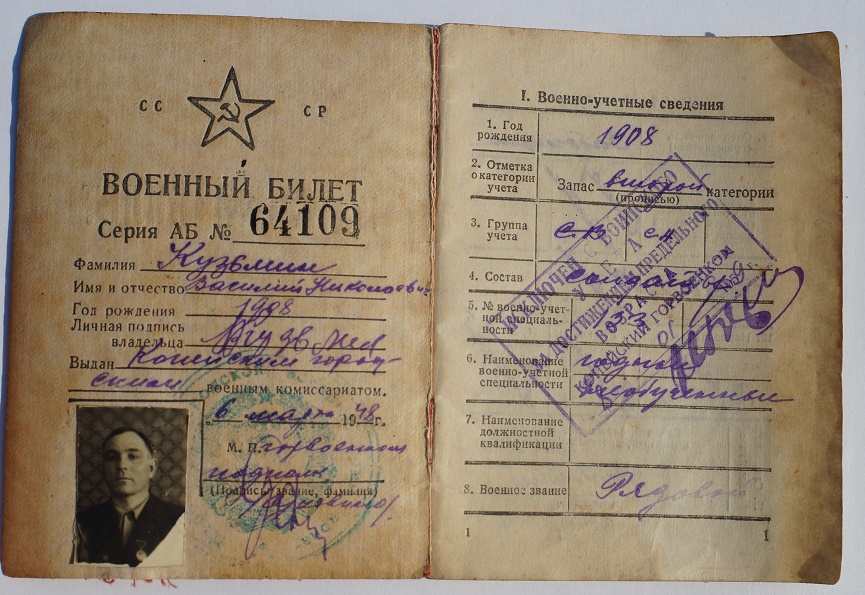 СС СР
ВОЕННЫЙ БИЛЕТ
Серия АБ № 64109
Фамилия Кузьмин
Имя и отчество Василий Николаевич
Год рождения 1908
Личная подпись
владельца
Выдан Копейским город-
ским военным комиссариатом.
6 марта 1948 г.
М. П. Горвоенком
подполк
(Подпись, звание, фамилия)
I. Военно-учетные сведения
1. Год
рождения 1908
2. Отметка
о категории
учета
Запас второй категории
(прописью)
3. Группа
учета
4. Состав солдаты
5. № военно-учет-
ной специаль-
ности
6. Наименование
военно-учетной
специальности
годный
необученный
7. Наименование
должностной
квалификации
8. Военное звание Рядовой
1 1
ИСКЛЮЧЕН С ВОИНСКОГО
УЧЕТА
ПО ДОСТИЖЕНИИ ПРЕДЕЛЬНОГО
ВОЗРАСТА
КОПЕЙСКИЙ ГОРВОЕНКОМ